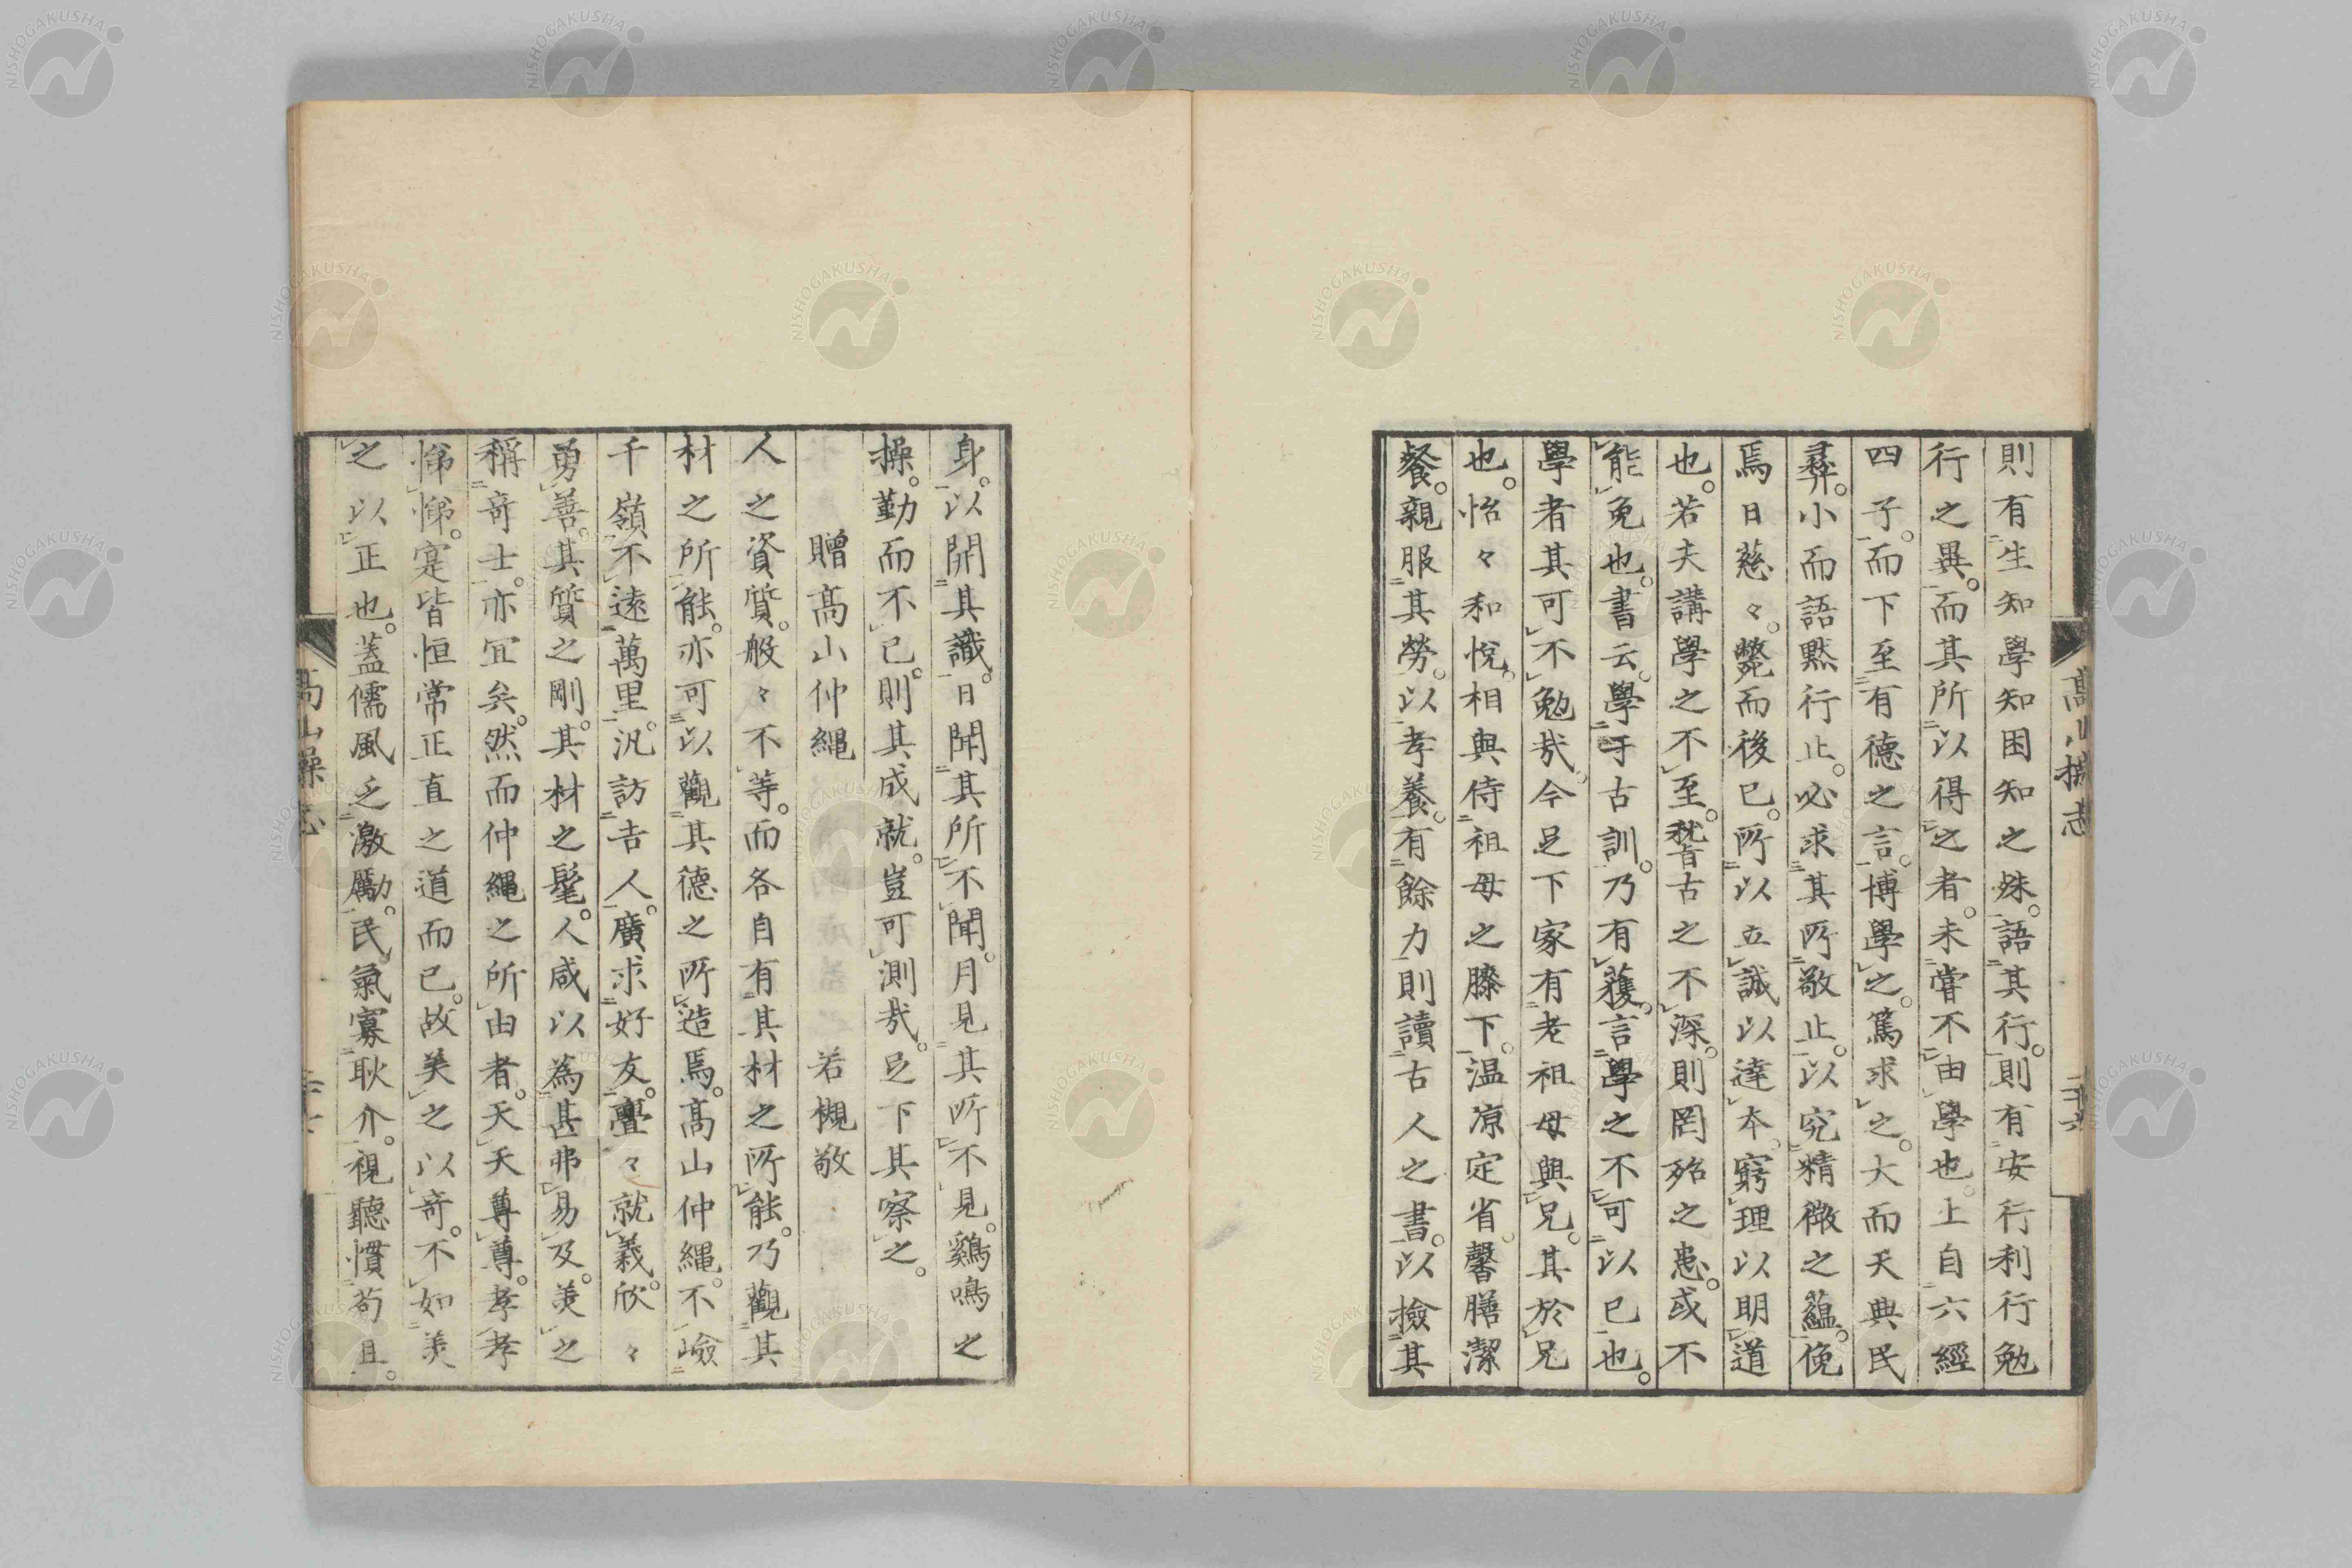 則有生知學知困知之殊。語其行。則有安行利行勉
行之異。而其所以得之者。未嘗不由學也。上自六經
四子。而下至有德之言。博學之。篤求之。大而天典民
彛。小而語黙行止。必求其所敬止。以究精微之蘊。俛
焉日慈々。斃而後已。所以立誠以達本。窮理以明道
也。若夫講學之不至。稽古之不深。則罔殆之患。或不
能免也。書云。學于古訓。乃有獲。言學之不可以已也。
學者其可不勉哉。今足下家有老祖母與兄。其於兄
也。怡々和悅。相與侍祖母之膝下。温凉定省。馨膳潔
餐。親服其勞。以孝養。有餘力則讀古人之書。以撿其
髙山操志
二十六
身。以開其識。日聞其所不聞。月見其所不見。鷄鳴之
操。勤而不已。則其成就。豈可測哉。足下其察之。
贈髙山仲繩 若槻敬
人之資質。般々不等。而各自有其材之所能。乃觀其
材之所能。亦可以觀其德之所造焉。髙山仲繩。不嶮
千嶺不遠萬里。汎訪吉人。廣求好友。亹々就義。欣々
勇善。其質之剛。其材之髦。人咸以為甚弗易及。美之
稱竒士。亦宜矣。然而仲繩之所由者。天天尊尊。孝孝
悌悌。寔皆恒常正直之道而已。故美之以竒。不如美
之以正也。蓋儒風乏激勵。民氣寡耿介。視聽慣苟且。
髙山操志
二十七
NISHOGAKUSHA